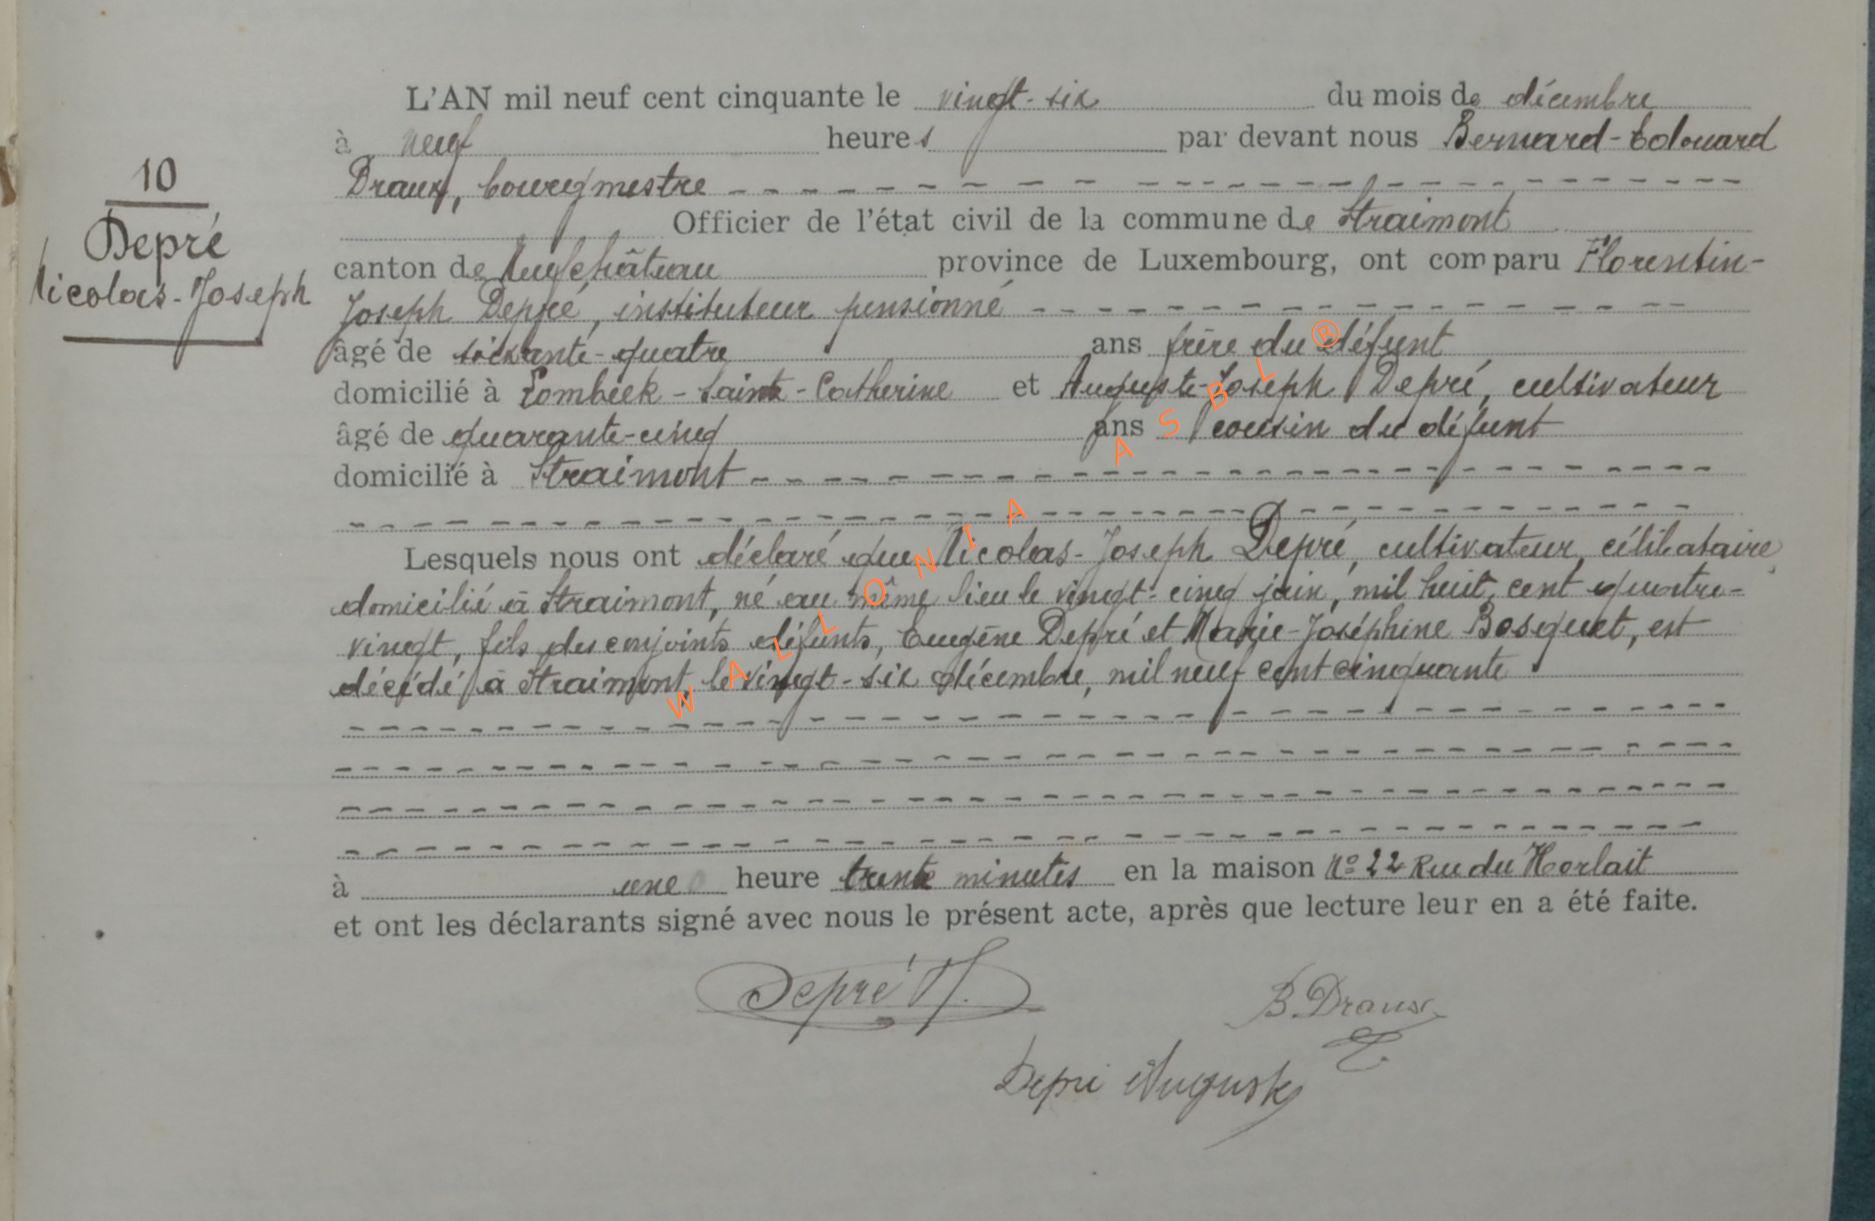 L'AN mil neuf cent cinquante le vingt-six du mois de décembre
à neuf heures par devant nous Bernard-Edouard
Draux, bourgmestre
Officier de l'état civil de la commune de Straimont
canton de Neufchâteau province de Luxembourg, ont comparu Florentin-
Joseph Depré, instituteur pensionné
âgé de soixante-quatre ans frère du défunt
domicilié à Lombeek-Sainte-Catherine et Auguste-Joseph Depré, cultivateur
âgé de quarante-cinq ans cousin du défunt
domicilié à Straimont
10
Depré
Nicolas-Joseph
Lesquels nous ont déclaré que Nicolas-Joseph Depré, cultivateur, célibataire,
domicilié à Straimont, né au même lieu le vingt-cinq juin, mil huit cent quatre-
vingt, fils des conjoints défunts, Eugène Depré et Marie-Joséphine Bosquet, est
décédé à Straimont, le vingt-six décembre, mil neuf cent cinquante
à une heure trente minutes en la maison No 22 Rue du Horlait
et ont les déclarants signé avec nous le présent acte, après que lecture leur en a été faite.
Depré
B. Draux
Depré Auguste
WALLONIA ASBL ®